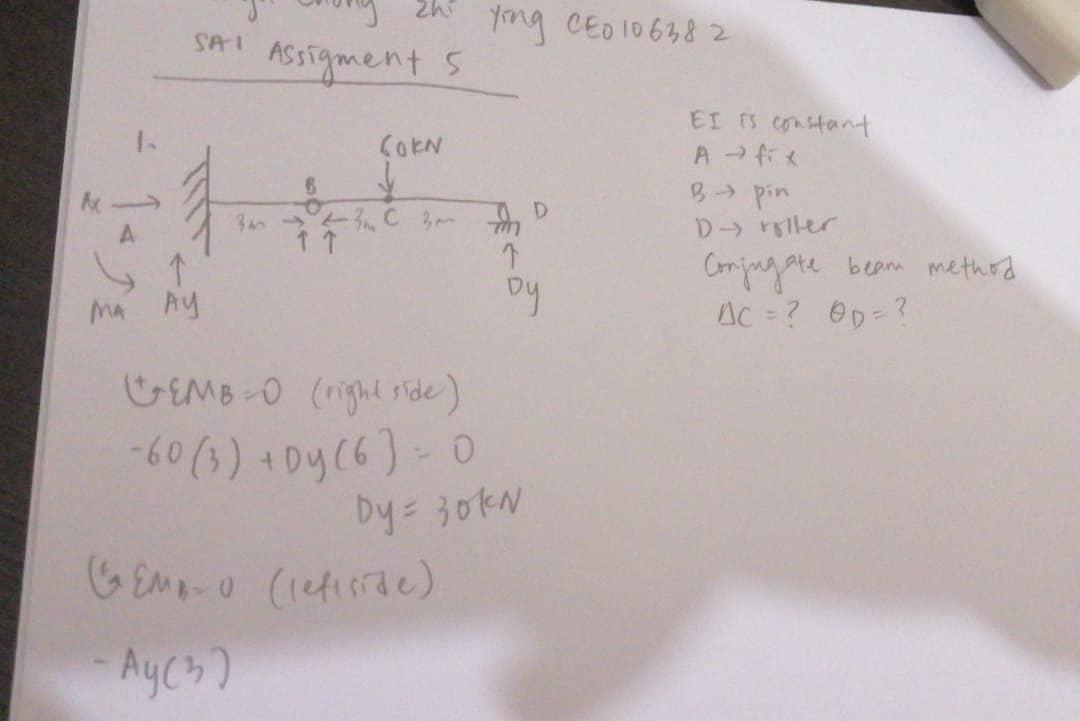 Zhi Ying CE0106382
SA1 Assigment 5
1.
60KN
B
Ax
A
3m
3m
C
3m
D
MA
Ay
Dy
EI is constant
A → fix
B → pin
D → roller
Conjugate beam method
ΔC = ? θD = ?
ΣMB = 0 (right side)
-60(3) + Dy(6) = 0
Dy = 30kN
ΣMB = 0 (left side)
- Ay(3)